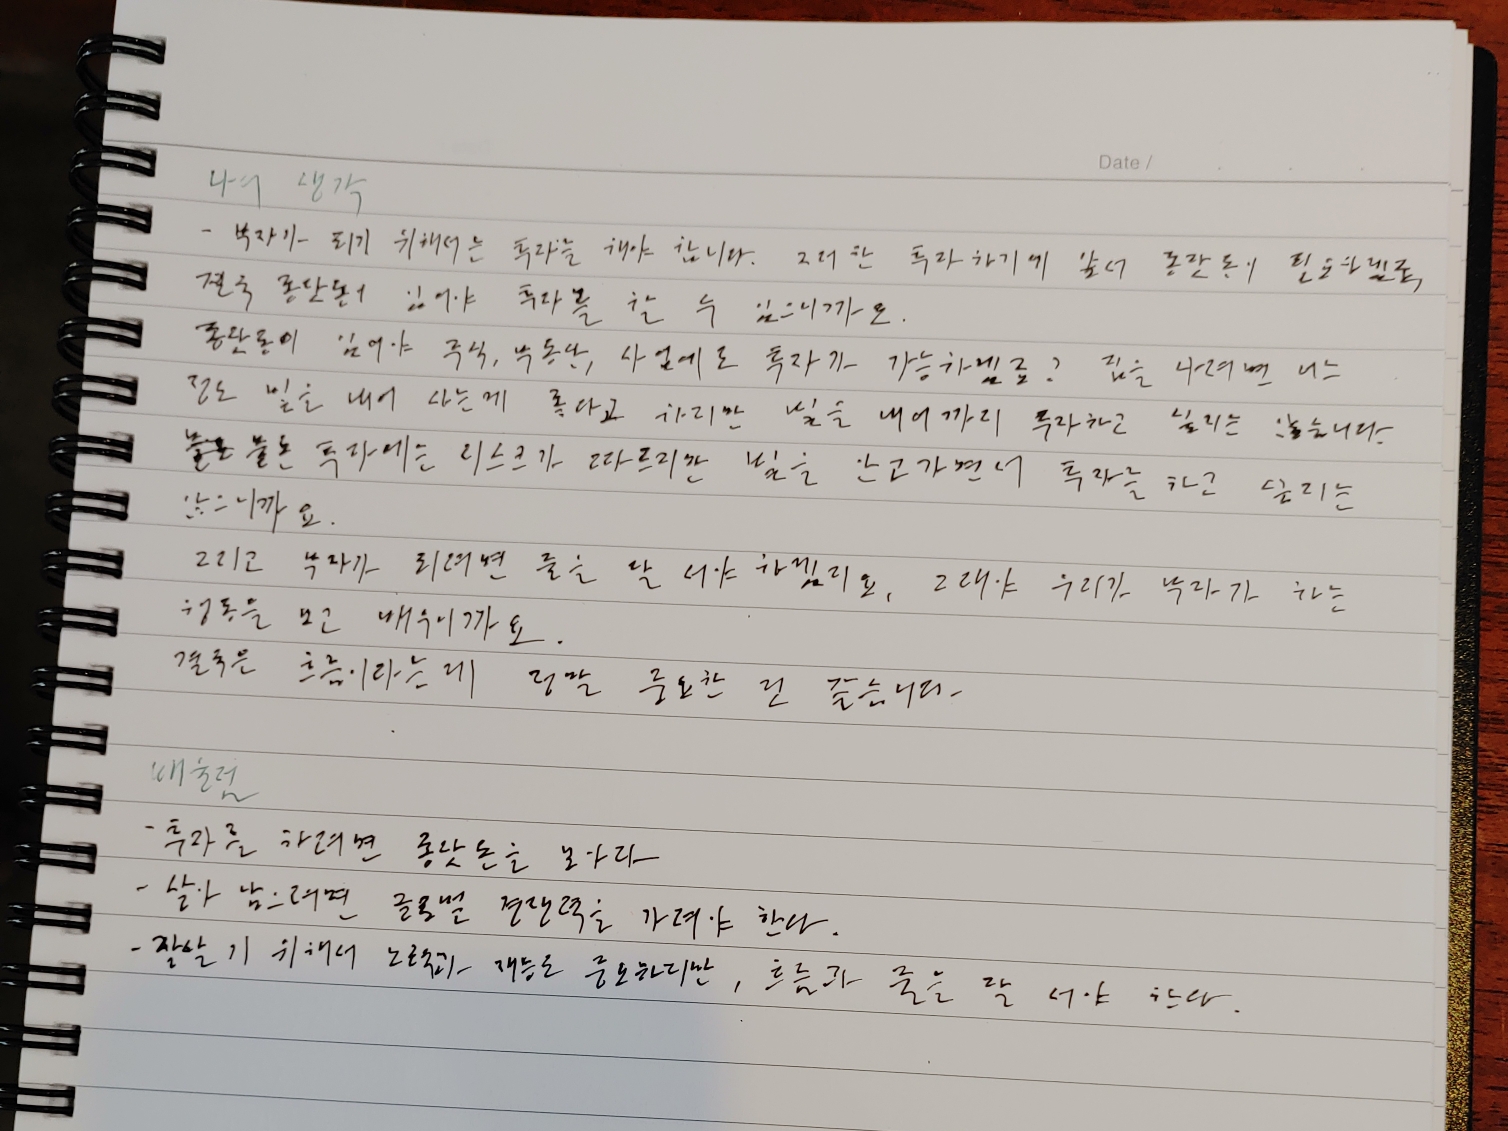 Date / . . .
나의 생각
- 부자가 되기 위해서는 투자를 해야 합니다. 그러한 투자하기에 앞서 종잣돈이 필요하겠죠,
결국 종잣돈이 있어야 투자를 할 수 있으니까요.
종잣돈이 있어야 주식, 부동산, 사업에도 투자가 가능하겠죠? 집을 사려면 어느
정도 빚을 내어 사는게 좋다고 하지만 빚을 내어까지 투자하고 싶지는 않습니다.
물론 투자에는 리스크가 따르지만 빚을 안고가면서 투자를 하고 싶지는
않으니까요.
그리고 부자가 되려면 줄을 잘 서야 하겠지요, 그래야 우리가 부자가 하는
행동을 보고 배우니까요.
결국은 흐름이라는게 정말 중요한 것 같습니다.
배울점
- 투자를 하려면 종잣돈을 모아라
- 살아 남으려면 글로벌 경쟁력을 가져야 한다.
- 잘살기 위해서 노력과 재능도 중요하지만, 흐름과 줄을 잘 서야 한다.